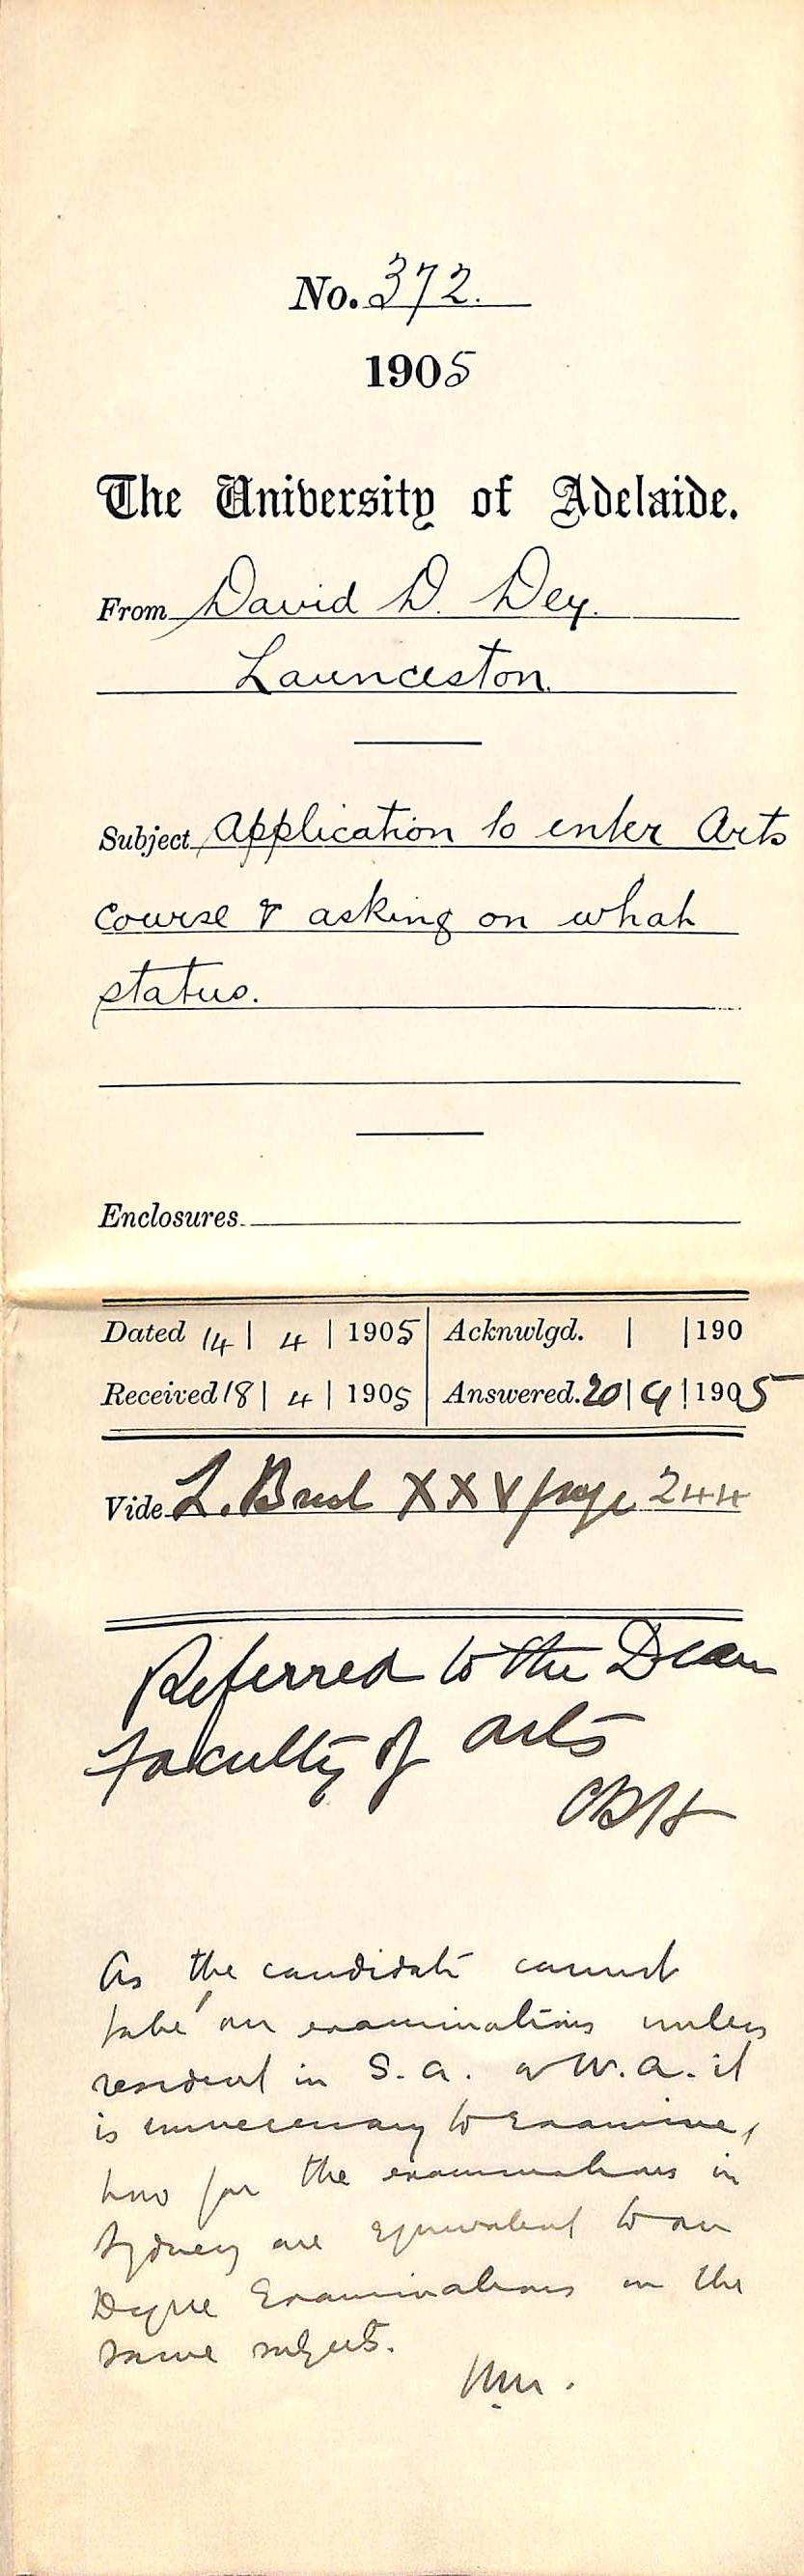 No. 372.
1905
The University of Adelaide.
From David D. Dey.
Launceston.
Subject Application to enter Arts
course & asking on what
status.
Enclosures
Dated 14 | 4 | 1905 Acknwlgd. | | 190
Received 18 | 4 | 1905 Answered. 20 | 4 | 1905
Vide L. Book XXV page 244
Referred to the Dean
Faculty of Arts
As the candidate cannot
take our examinations unless
resident in S. A. or W. A. it
is unnecessary to examine,
how far the examinations in
Sydney are equivalent to our
Degree Examinations in the
same subjects.